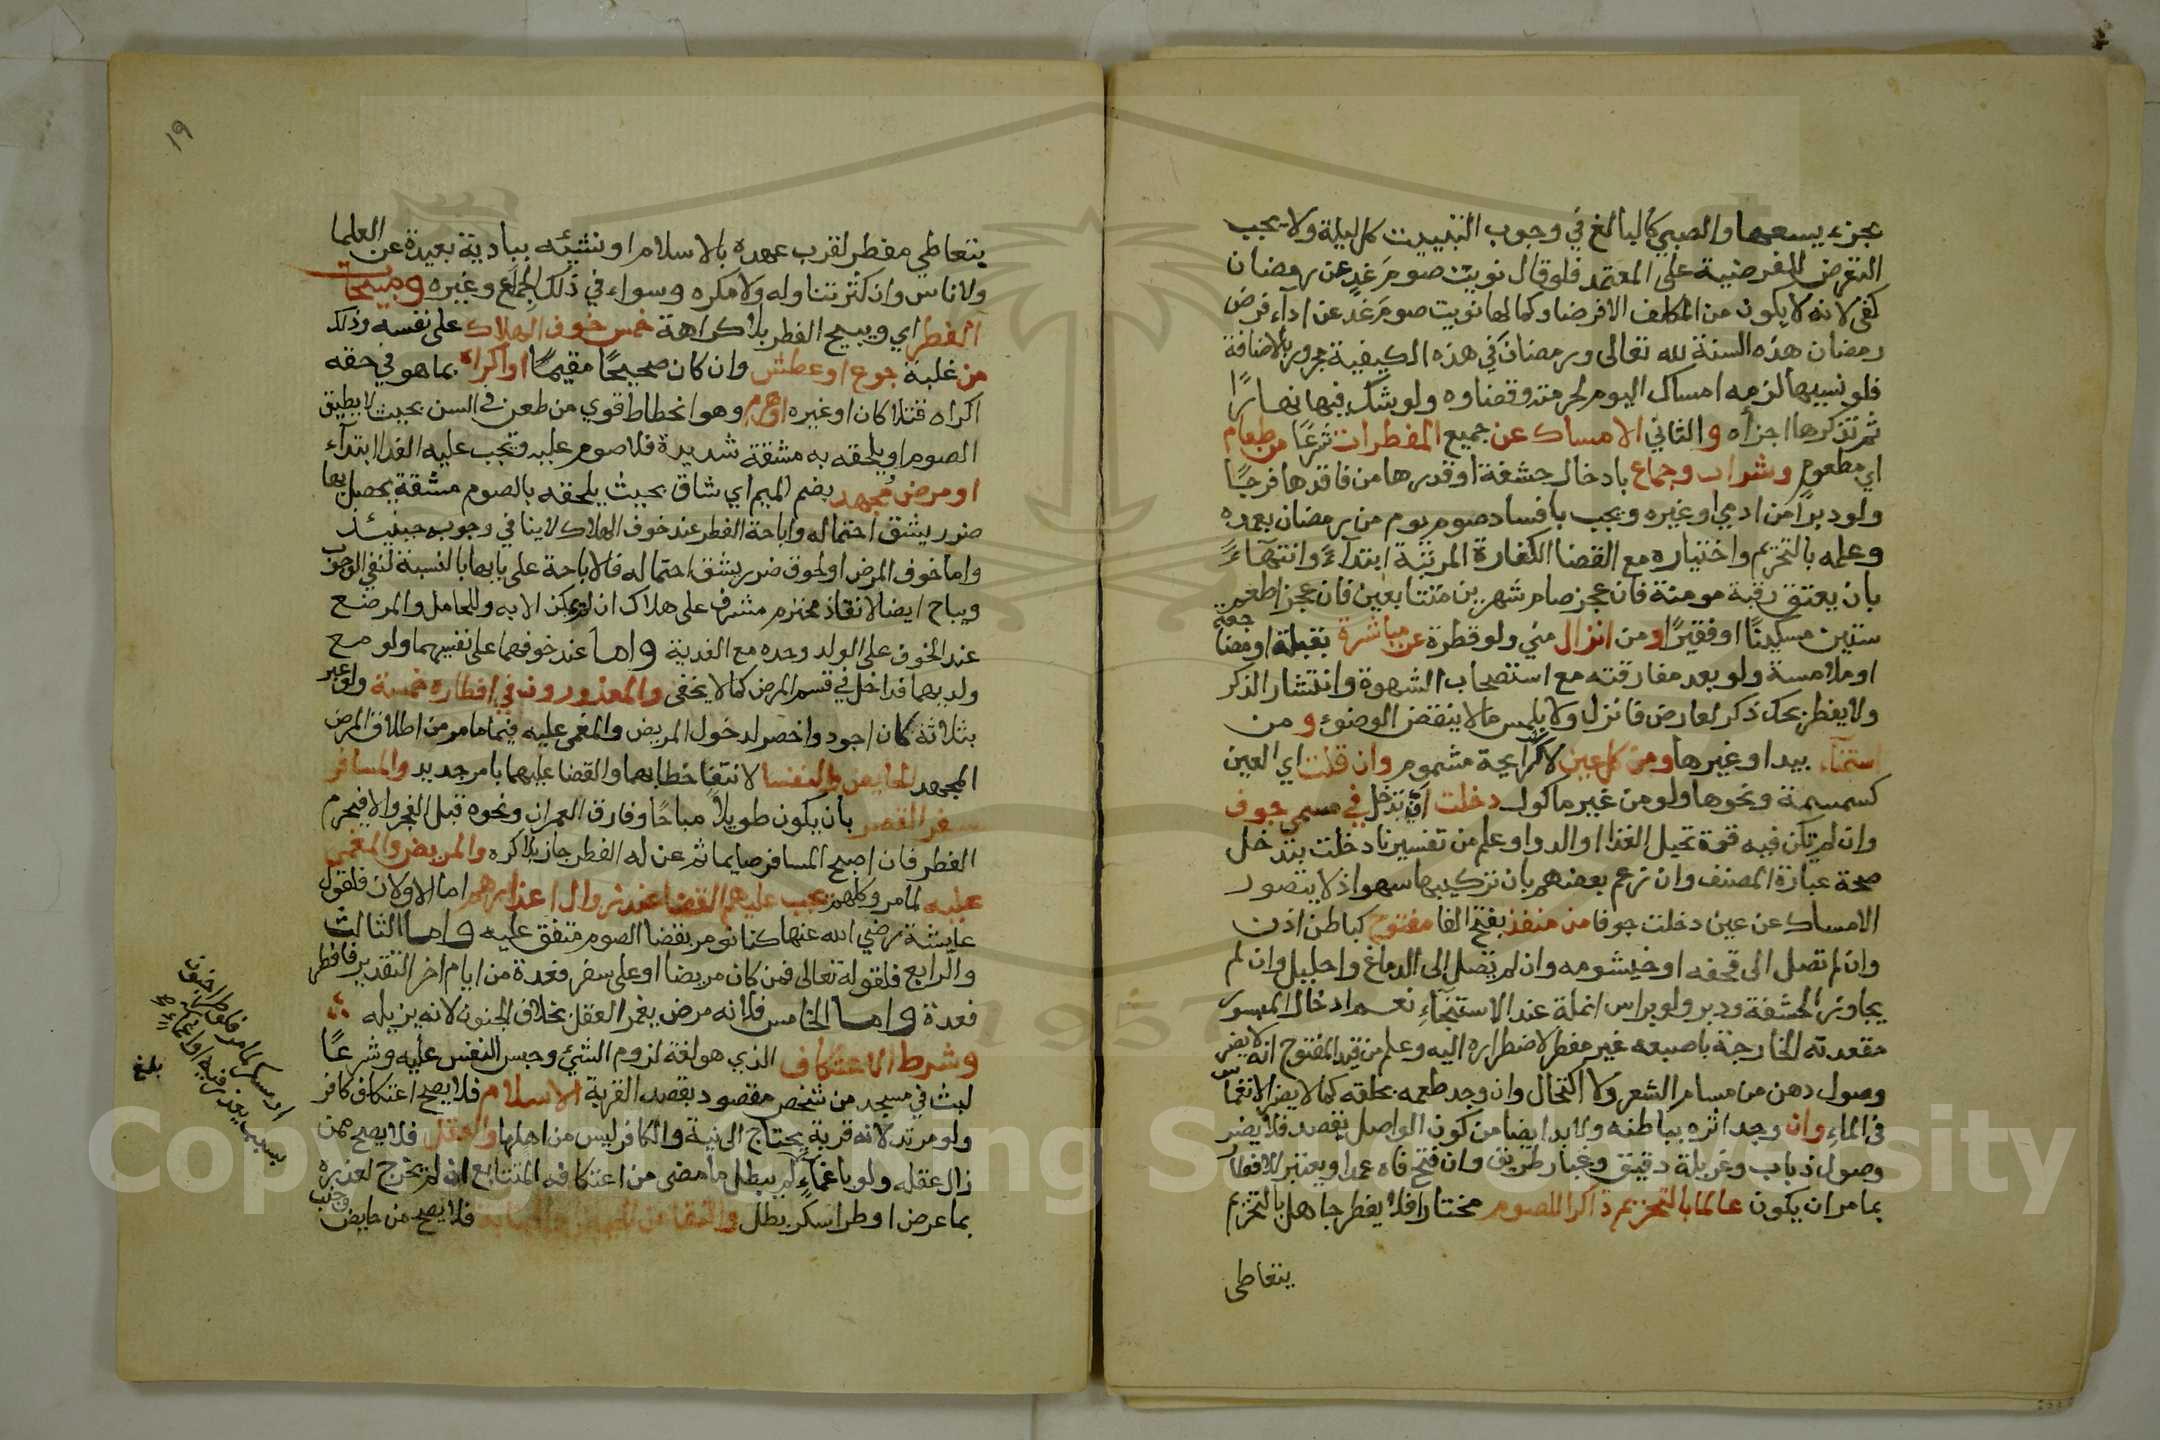 بجزء يسعها والصبي كالبالغ في وجوب التبييت كل ليلة ولا يجب
التعرض للفرضية على المعتمد فلو قال نويت صوم غدٍ عن رمضان
كفى لانه لا يكون من المكلف الا فرضا وكمالها نويت صوم غدٍ عن اداء فرض
رمضان هذه السنة لله تعالى ورمضان في هذه الكيفية مجرور بالاضافة
فلو نسيها لزمه امساك اليوم لحرمته وقضاوه ولو شك فيها نهارًا
ثم تذكرها اجزأه والثاني الامساك عن جميع المفطرات شرعًا من طعام
اي مطعوم وشراب وجماع بادخال حشفة او قدرها من فاقدها فرجًا
ولو دبرًا من ادمي او غيره ويجب بافساد صوم يوم من رمضان بعمده
وعلمه بالتحريم واختياره مع القضا الكفارة المرتبة ابتدآءً وانتهآءً
بان يعتق رقبة مومنة فان عجز صام شهرين متتابعين فان عجز اطعم
ستين مسكينًا او فقيرًا ومن انزال مني ولو قطرة عن مباشرة بقبلة او مضاجعة
او ملامسة ولو بعد مفارقته مع استصحاب الشهوة وانتشار الذكر
ولا يفطر بحك ذكر لعارض فانزل ولا بلمس ما لا ينقض الوضوء و من
استمنآء بيد او غيرها ومن كل عين لا كرايحة مشموم وان قلت اي العين
كسمسمة ونحوها ولو من غير ماكول دخلت اي تدخل في مسمى جوف
وان لم تكن فيه قوة تحيل الغذا او الدوا وعلم من تفسيرنا دخلت بتدخل
صحة عبارة المصنف وان زعم بعضهم بان تركيبها سهوا ذ لا يتصور
الامساك عن عين دخلت جوفا من منفذ بفتح الفا مفتوح كباطن اذن
وان لم تصل الى قحفه او خيشومه وان لم تصل الى الدماغ واحليل وان لم
يجاوز الحشفة ودبر ولو براس انملة عند الاستنجآءِ نعم ادخال المبسور
مقعدته الخارجة باصبعه غير مفطر لاضطراره اليه وعلم من قيد المفتوح انه لا يضر
وصول دهن من مسام الشعر ولا اكتحال وان وجد طعمه بحلقه كما لا يضر الانغماس
في الماء وان وجد اثره بباطنه ولا بد ايضا من كون الواصل بقصد فلا يضر
وصول ذباب وغربلة دقيق وغبار طريق وان فتح فاه عمدا ويعتبر للافطار
بما مر ان يكون عالما بالتحريم ذاكرا للصوم مختارا فلا يفطر جاهل بالتحريم
يتعاطى
١٩
يتعاطي مفطر لقرب عهده بالاسلام او نشئه ببادية بعيدة عن العلما
ولا ناس وان كثر تناوله ولا مكره وسواء في ذلك الجماع وغيره ومبيحات
الفطر اي ويبيح الفطر بلا كراهة خمس خوف الهلاك على نفسه وذلك
من غلبة جوع او عطش وان كان صحيحًا مقيمًا او اكراه بما هو في حقه
اكراه قتلا كان او غيره او هرم وهو انحطاط قوي من طعن في السن بحيث لا يطيق
الصوم او يلحقه به مشقة شديدة فلا صوم عليه وتجب عليه الفدا ابتدآء
او مرض مُجهد بضم الميم اي شاق بحيث يلحقه بالصوم مشقة يحصل بها
ضرر يشق احتماله واباحة الفطر عند خوف الهلاك لا ينافي وجوبه حينئذ
واما خوف المرض او لحوق ضرر يشق احتماله فالاباحة على بابها بالنسبة لنفي الوجوب
ويباح ايضا لانقاذ محترم مشرف على هلاك ان لم يمكن الا به وللحامل والمرضع
عند الخوف على الولد وحده مع الفدية واما عند خوفهما على نفسيهما ولو مع
ولديهما فداخل في قسم المرض كما لا يخفى والمعذورون في افطاره خمسة ولو عبر
بثلاثة كان اجود واخصر لدخول المريض والمغمى عليه فيما مر من اطلاق المرض
المجهد الحايض والنفسا لانتفا خطابهما والقضا عليهما بامر جديد والمسافر
سفر القصر بان يكون طويلًا مباحًا وفارق العمران ونحوه قبل الفجر والا فيحرم
الفطر فان اصبح المسافر صايما ثم عن له الفطر جاز بلا كره والمريض والمغمى
عليه لما مر وكلهم يجب عليهم القضا عند زوال اعذارهم اما الاولان فلقول
عايشة رضي الله عنها كنا نومر بقضا الصوم متفق عليه واما الثالث
والرابع فلقوله تعالى فمن كان مريضا او على سفر فعدة من ايام اخر التقدير فافطر
فعدة واما الخامس فلانه مرض يغمر العقل بخلاف الجنون لانه يزيله
وشرط الاعتكاف الذي هو لغة لزوم الشئ وحبس النفس عليه وشرعًا
لبث في مسجد من شخص مقصود بقصد القربة الاسلام فلا يصح اعتكاف كافر
ولو مرتد لانه قربة يحتاج الى نية والكافر ليس من اهلها والعقل فلا يصح ممن
زال عقله ولو باغماءٍ لم يبطل ما مضى من اعتكافه المتتابع ان لم يخرج لعذره
بما عرض او طرا سكرٍ بطل والنقا من الحيض والجنابة فلا يصح من حايض وجنب
بلغ